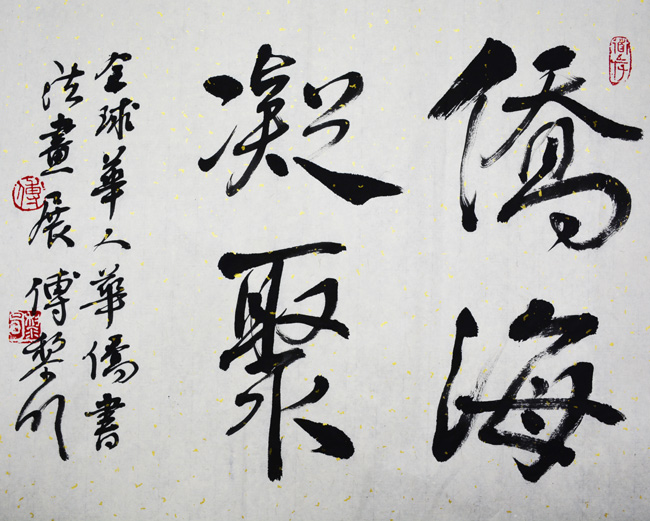 僑海
凝聚
全球華人華僑書
法畫展 傅黎明
傅